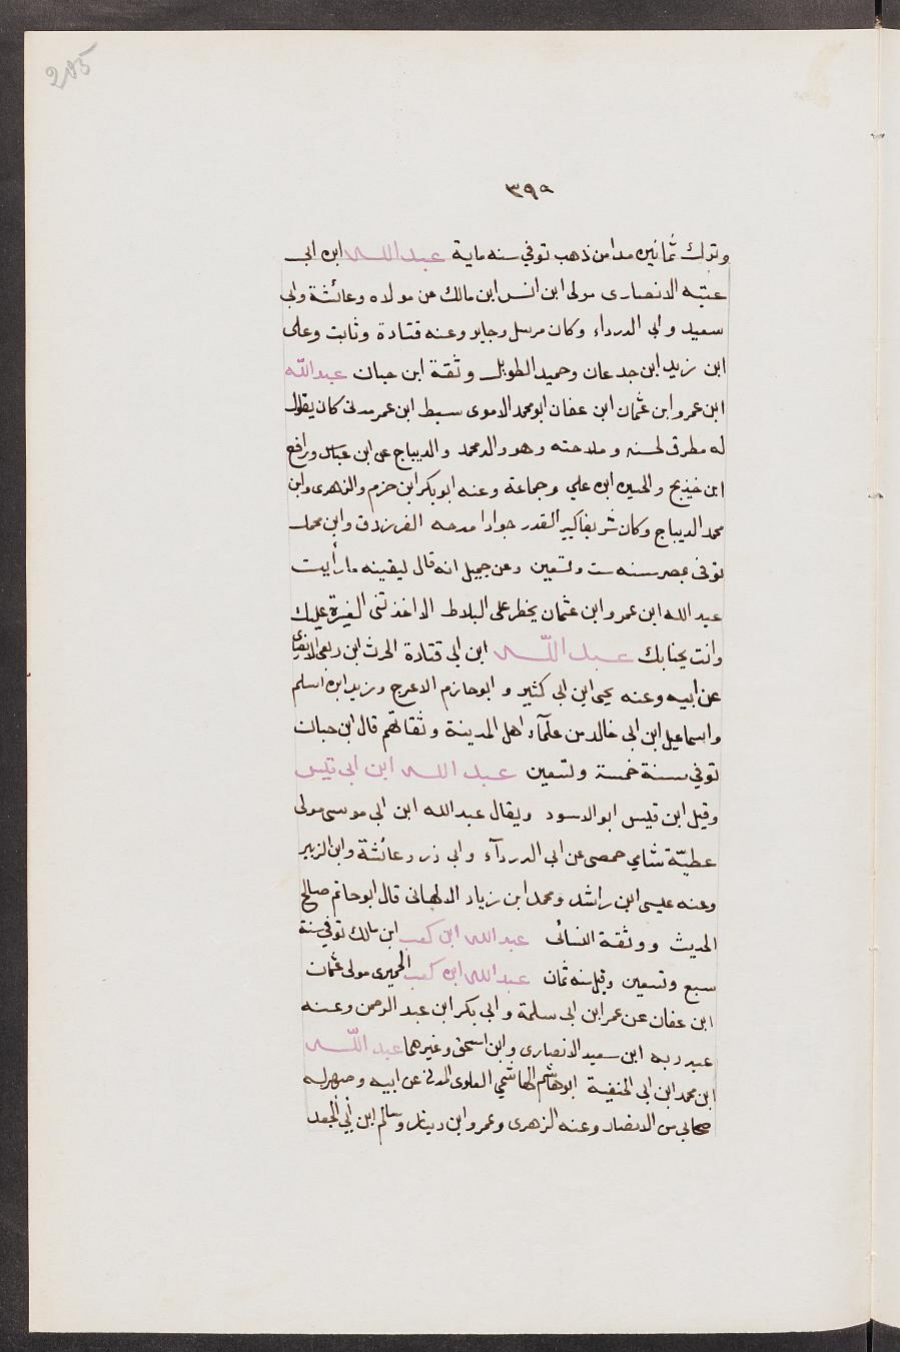 205
٣٩٩
وترك ثمانين مدا من ذهب توفي سنه ماية عبد الله ابن ابى
عتبه الانصارى مولى ابن انس ابن مالك عن مولاه وعائشة وابى
سعيد وابى الدرداء وكان مرسل وجابر وعنه قتادة وثابت وعلى
ابن زيد ابن جدعان وحميد الطويل وثقة ابن حبان عبد الله
ابن عمرو ابن عثمان ابن عفان ابو محمد الاموى سبط ابن عمر مدنى كان يقال
له مطرق لحسنه وملاحته وهو والد محمد والديباج عن ابن عباس ورافع
ابن خديج والحسين ابن علي وجماعة وعنه ابو بكر ابن حزم والزهرى وابن
محمد الديباج وكان شريفا كبير القدر جوادا مدحه الفرزدق وابن محمد
توفى بمصر سنه ست وتسعين وعن جميل انه قال ليقينه ما رأيت
عبد الله ابن عمرو ابن عثمان يخطر على البلاط الا اخذتنى الغيرة عليك
وانت بجنابك عبد اللّه ابن ابى قتادة الحرث ابن ربعى الانصارى
عن ابيه وعنه يحيى ابن ابى كثير و ابو حازم الاعرج وزيد ابن اسلم
واسماعيل ابن ابى خالد من علمآء اهل المدينة وثقاتهم قال ابن حبان
توفي سنة خمسة وتسعين عبد الله ابن ابى قيس
وقيل ابن قيس ابو الاسود ويقال عبد الله ابن ابى موسى مولى
عطيّة شامي حمصى عن ابى الدردآء وابى ذر وعائشة وابن الزبير
وعنه عيسى ابن راشد ومحمد ابن زياد الالهانى قال ابو حاتم صالح
الحديث ووثقة النسائى عبد الله ابن كعب ابن مالك توفي سنة
سبع وتسعين وقيل سنه ثمان عبد الله ابن كعب الحميرى مولى عثمان
ابن عفان عن عمر ابن ابى سلمة وابى بكر ابن عبد الرحمن وعنه
عبد ربه ابن سعيد الانصارى وابن اسحق وغيرهما عبد اللّه
ابن محمد ابن ابى الحنفية ابو هاشم الهاشمي العلوى المدنى عن ابيه وصهر له
صحابى من الانصار وعنه الزهرى وعمرو ابن دينار وسالم ابن أبي الجعد